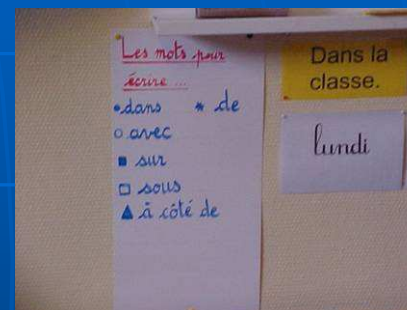 Les mots pour
écrire ...
• dans * de
○ avec
■ sur
□ sous
▲ à côté de
Dans la
classe.
lundi